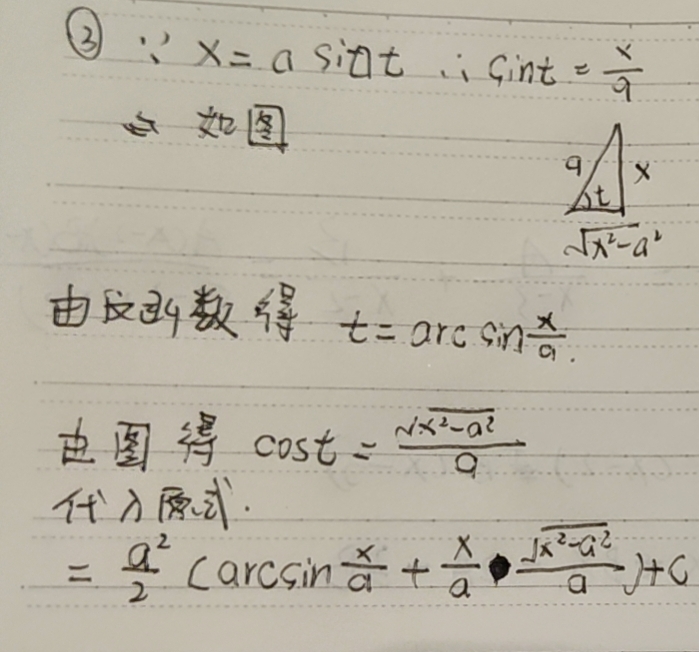 ③ ∵ x = a sint ∴ sint = x/a
如图
a x t
√x²-a²
由反函数得 t = arcsin x/a.
由图得 cost = √x²-a²/a
代入原式.
= a²/2 (arcsin x/a + x/a · √x²-a²/a) + C